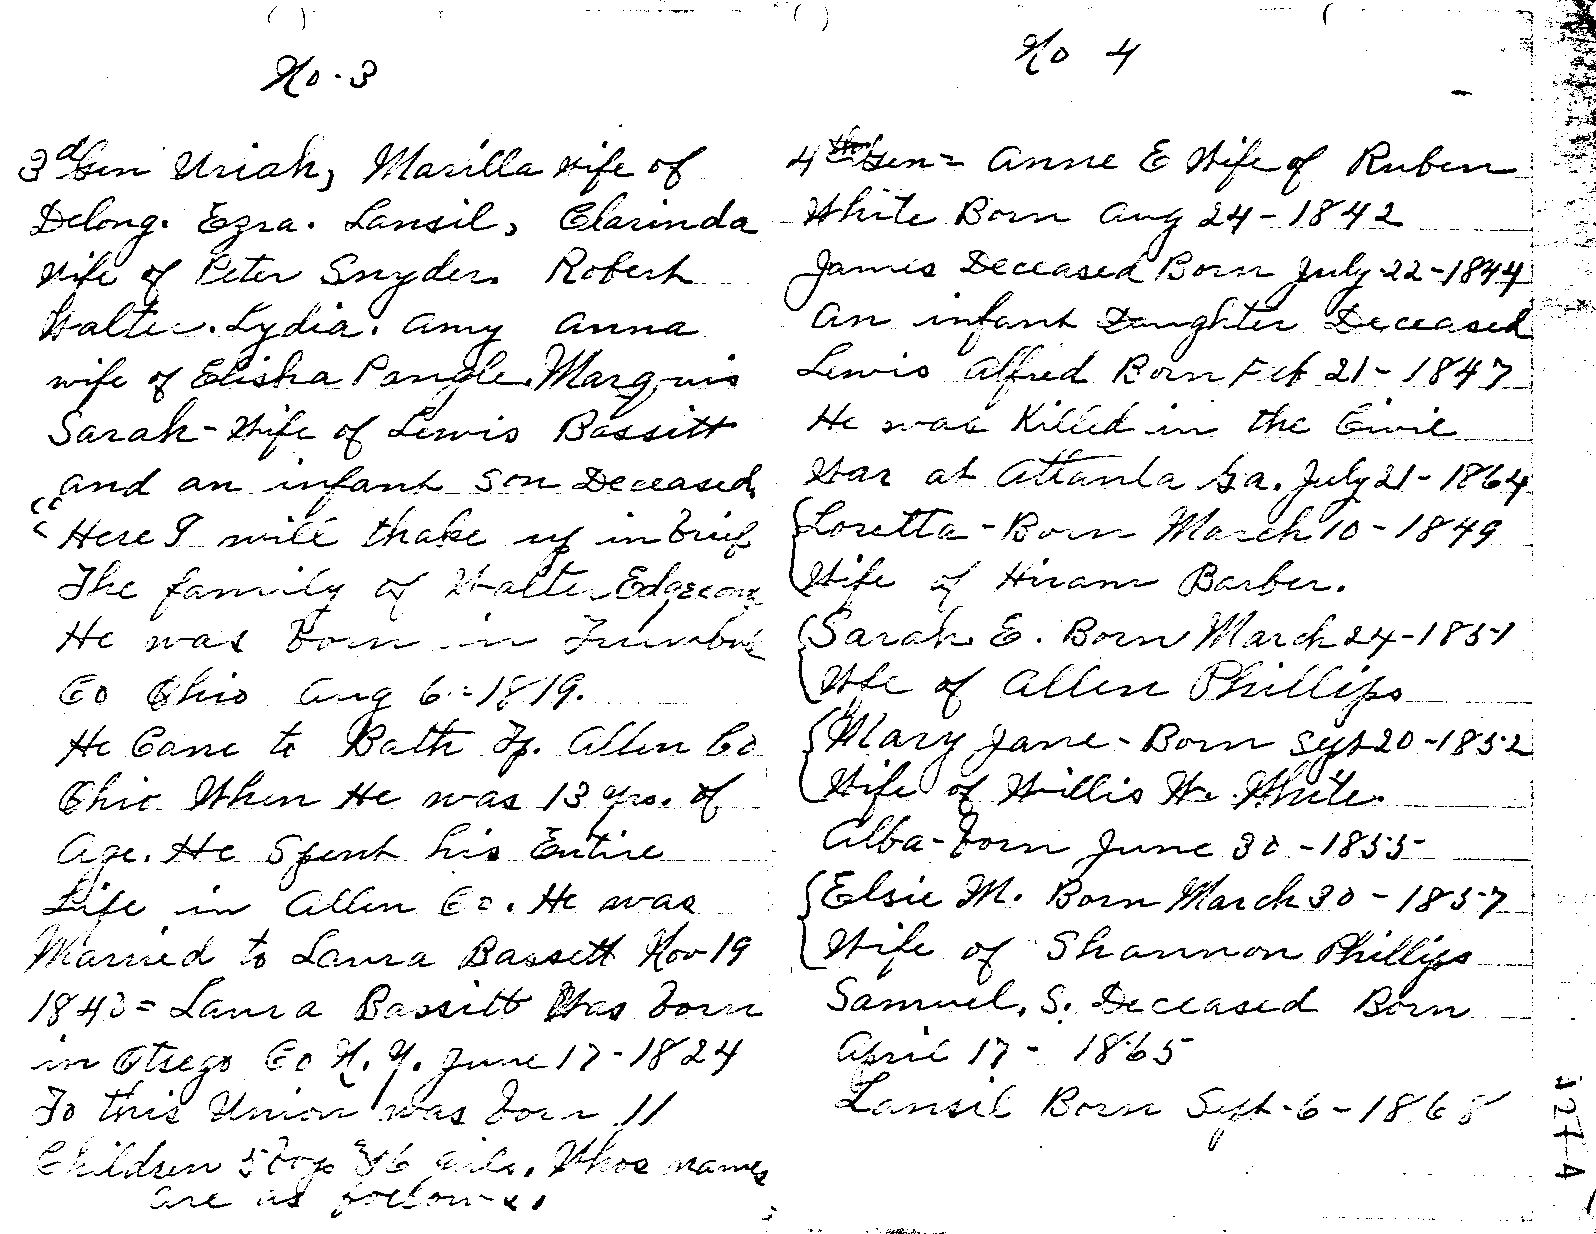 No. 3
3d Gen Uriah, Marilla wife of
Delong. Ezra. Lansil, Clarinda
Wife of Peter Snyder. Robert
Walter. Lydia. Amy Anna
wife of Elisha Pangle. Marquis
Sarah - Wife of Lewis Bassitt
and an infant Son Deceased,
"Here I will thake up in brief
The family of Walter Edgecomb
He was born in Trumbul
Co Ohio Aug 6 - 1819.
He Came to Bath Tp. Allen Co
Ohio When He was 13 yrs. of
Age. He Spent his Entire
Life in Allen Co. He was
Married to Laura Bassett Nov 19
1840 = Laura Bassitt Was born
in Otsego Co N. Y. June 17 - 1824
To this Union was born 11
Children 5 boys & 6 girls. Whos names
are as follows.
No 4
4th Gen = Anne E Wife of Ruben
White Born Aug 24 - 1842
James Deceased Born July 22 - 1844
An infant Daughter Deceased
Lewis Alfred Born Feb 21 - 1847
He was Killed in the Civil
War at Attanla Ga. July 21 - 1864
Loretta - Born March 10 - 1849
Wife of Hiram Barber.
Sarah E. Born March 24 - 1851
Wife of Allen Phillips
Mary Jane - Born Sept 20 - 1852
Wife of Willis W. White.
Alba - born June 30 - 1855
Elsie M. Born March 30 - 1857
Wife of Shannon Phillips
Samuel. S. Deceased Born
April 17 - 1865
Lansil Born Sept - 6 - 1868